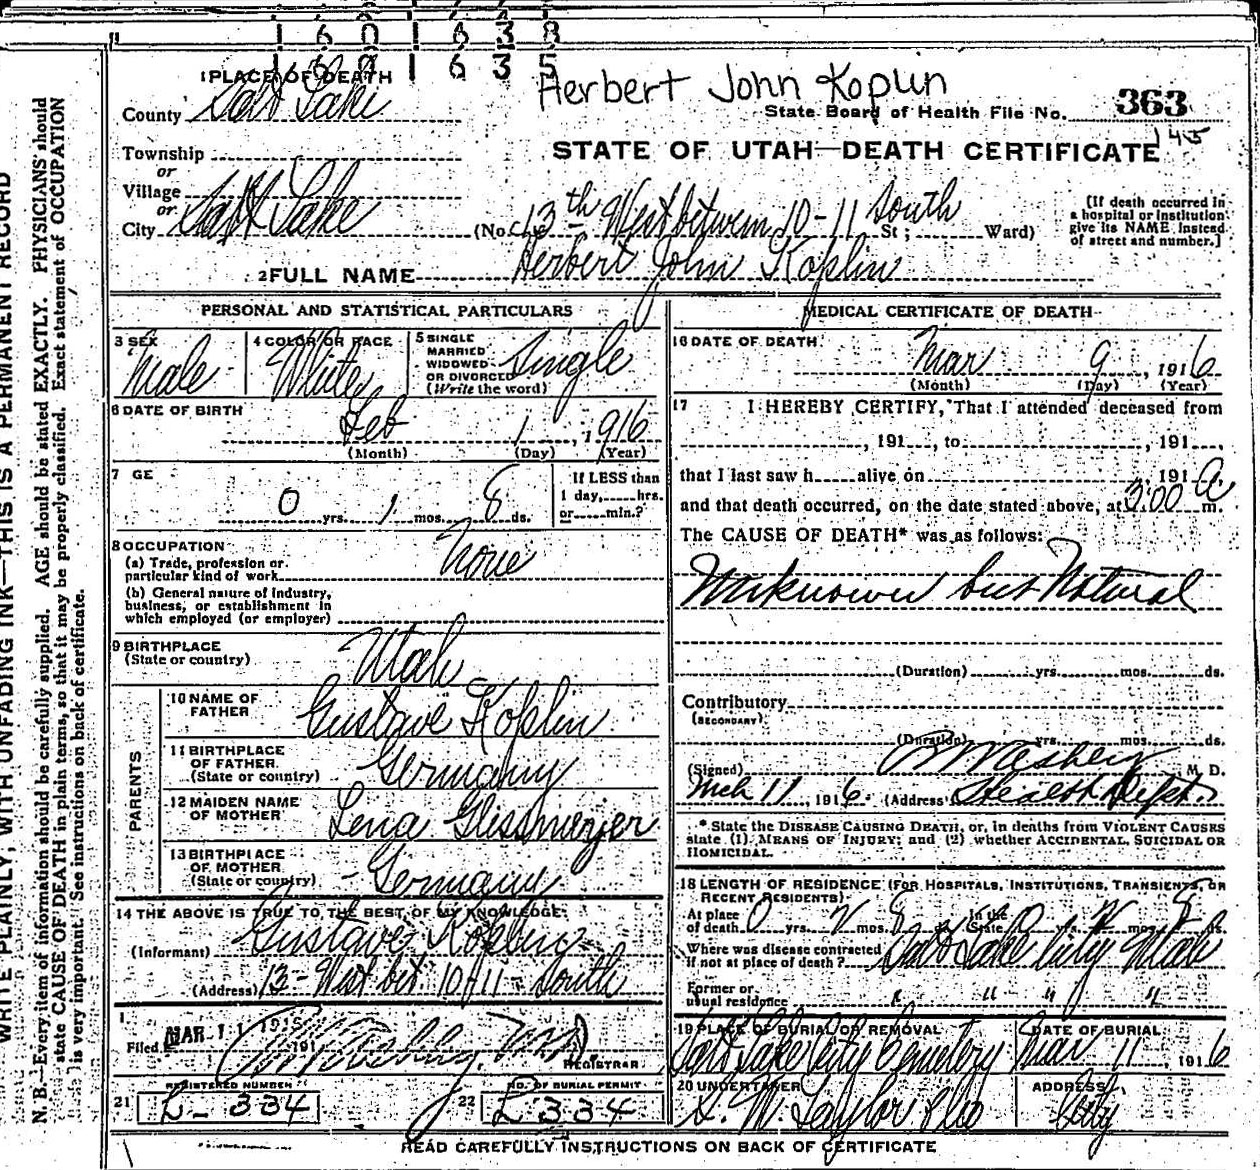 1 6 0 1 6 3 8
1 6 0 1 6 3 5
1 PLACE OF DEATH
Herbert John Koplin
County Salt Lake
State Board of Health File No. 363
145
Township
STATE OF UTAH—DEATH CERTIFICATE
or
Village
or
City Salt Lake (No. 13th West between 10-11 South St; Ward)
[If death occurred in
a hospital or institution
give its NAME instead
of street and number.]
2 FULL NAME Herbert John Koplin
PERSONAL AND STATISTICAL PARTICULARS
3 SEX Male
4 COLOR OR RACE White
5 SINGLE
MARRIED
WIDOWED
OR DIVORCED
(Write the word) Single
6 DATE OF BIRTH
Feb 1, 1916
(Month) (Day) (Year)
7 GE
0 yrs. 1 mos. 8 ds.
If LESS than
1 day, hrs.
or min.?
8 OCCUPATION
(a) Trade, profession or
particular kind of work None
(b) General nature of industry,
business, or establishment in
which employed (or employer)
9 BIRTHPLACE
(State or country) Utah
PARENTS
10 NAME OF
FATHER Gustave Koplin
11 BIRTHPLACE
OF FATHER
(State or country) Germany
12 MAIDEN NAME
OF MOTHER Lena
13 BIRTHPLACE
OF MOTHER
(State or country) Germany
14 THE ABOVE IS TRUE TO THE BEST OF MY KNOWLEDGE
(Informant) Gustave Koplin
(Address) 13-West bet 10 & 11 - South
Filed MAR 11 191
REGISTRAR
REGISTERED NUMBER
21 L-334
NO. OF BURIAL PERMIT
22 L 334
MEDICAL CERTIFICATE OF DEATH
16 DATE OF DEATH
Mar 9, 1916
(Month) (Day) (Year)
17 I HEREBY CERTIFY, That I attended deceased from
, 191 , to , 191 ,
that I last saw h alive on 191
and that death occurred, on the date stated above, at 3:00 a m.
The CAUSE OF DEATH* was as follows:
Unknown but Natural
(Duration) yrs. mos. ds.
Contributory
(SECONDARY)
(Duration) yrs. mos. ds.
(Signed) M. D.
Mch 11, 1916 (Address) Health Dept.
* State the DISEASE CAUSING DEATH, or, in deaths from VIOLENT CAUSES
state (1) MEANS OF INJURY; and (2) whether ACCIDENTAL, SUICIDAL OR
HOMICIDAL.
18 LENGTH OF RESIDENCE (FOR HOSPITALS, INSTITUTIONS, TRANSIENTS, OR
RECENT RESIDENTS)
At place
of death 0 yrs. mos. 8 ds. In the
State 0 yrs. mos. 8 ds.
Where was disease contracted
if not at place of death? Salt Lake City Utah
Former or
usual residence " " " "
19 PLACE OF BURIAL OR REMOVAL
Salt Lake City Cemetery
DATE OF BURIAL
Mar 11 1916
20 UNDERTAKER
S. M. Taylor & Co
ADDRESS
City
READ CAREFULLY INSTRUCTIONS ON BACK OF CERTIFICATE
WRITE PLAINLY, WITH UNFADING INK—THIS IS A PERMANENT RECORD
N. B.—Every item of information should be carefully supplied. AGE should be stated EXACTLY. PHYSICIANS should
state CAUSE OF DEATH in plain terms, so that it may be properly classified. Exact statement of OCCUPATION
is very important. See instructions on back of certificate.